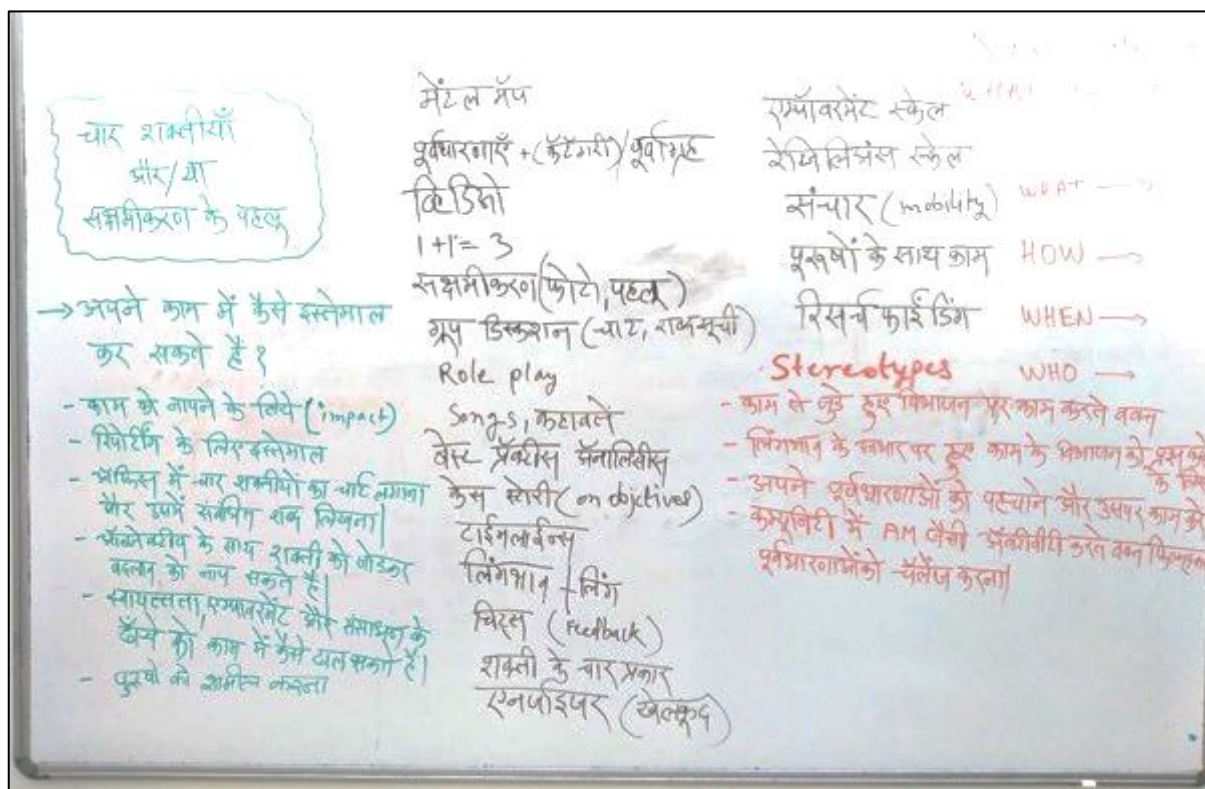 चार शक्तीयाँ
और/या
सक्षमीकरण के पहलू
→ अपने काम में कैसे इस्तेमाल
कर सकते है?
- काम को नापने के लिये (impact)
- रिपोर्टींग के लिए इस्तेमाल
- ऑफिस में चार शक्तीयों का चार्ट लगाना
और उसमें शब्द लिखना|
- के साथ शक्ती को जोडकर
बदलाव को नाप सकते है|
- स्वायत्तता, एम्पावरमेंट और संसाधन के
ढाँचे को काम में कैसे डाल सकते है|
- पुरुषो को शामील करना
मेंटल मॅप
पूर्वधारणाएँ + (कॅटॅगरी)/पूर्वाग्रह
व्हिडिओ
1+1=3
सक्षमीकरण (फोटो, पहलू)
ग्रुप डिस्कशन (चार्ट, शब्दसूची)
Role play
Songs, कहावते
बेस्ट प्रॅक्टीस अ‍ॅनालिसीस
केस स्टोरी (on objectives)
टाईमलाईन्स
लिंगभाव - लिंग
चिट्स (Feedback)
शक्ती के चार प्रकार
एनर्जाइजर (खेलकूद)
एम्पॉवरमेंट स्केल
रेझिलिअंस स्केल
संचार (mobility) WHAT →
पुरूषों के साथ काम HOW →
रिसर्च फाईंडिंग WHEN →
Stereotypes WHO →
- काम से जुडे हुए विभाजन पर काम करते वक्त
- लिंगभाव के आधार पर हुए काम के विभाजन को
के लिए
- अपने पूर्वधारणाओं को पहचाने और उसपर काम करे
- कम्युनिटी में AM जैसी अ‍ॅक्टीवीटी करते वक्त
पूर्वधारणाओंको चॅलेंज करना|